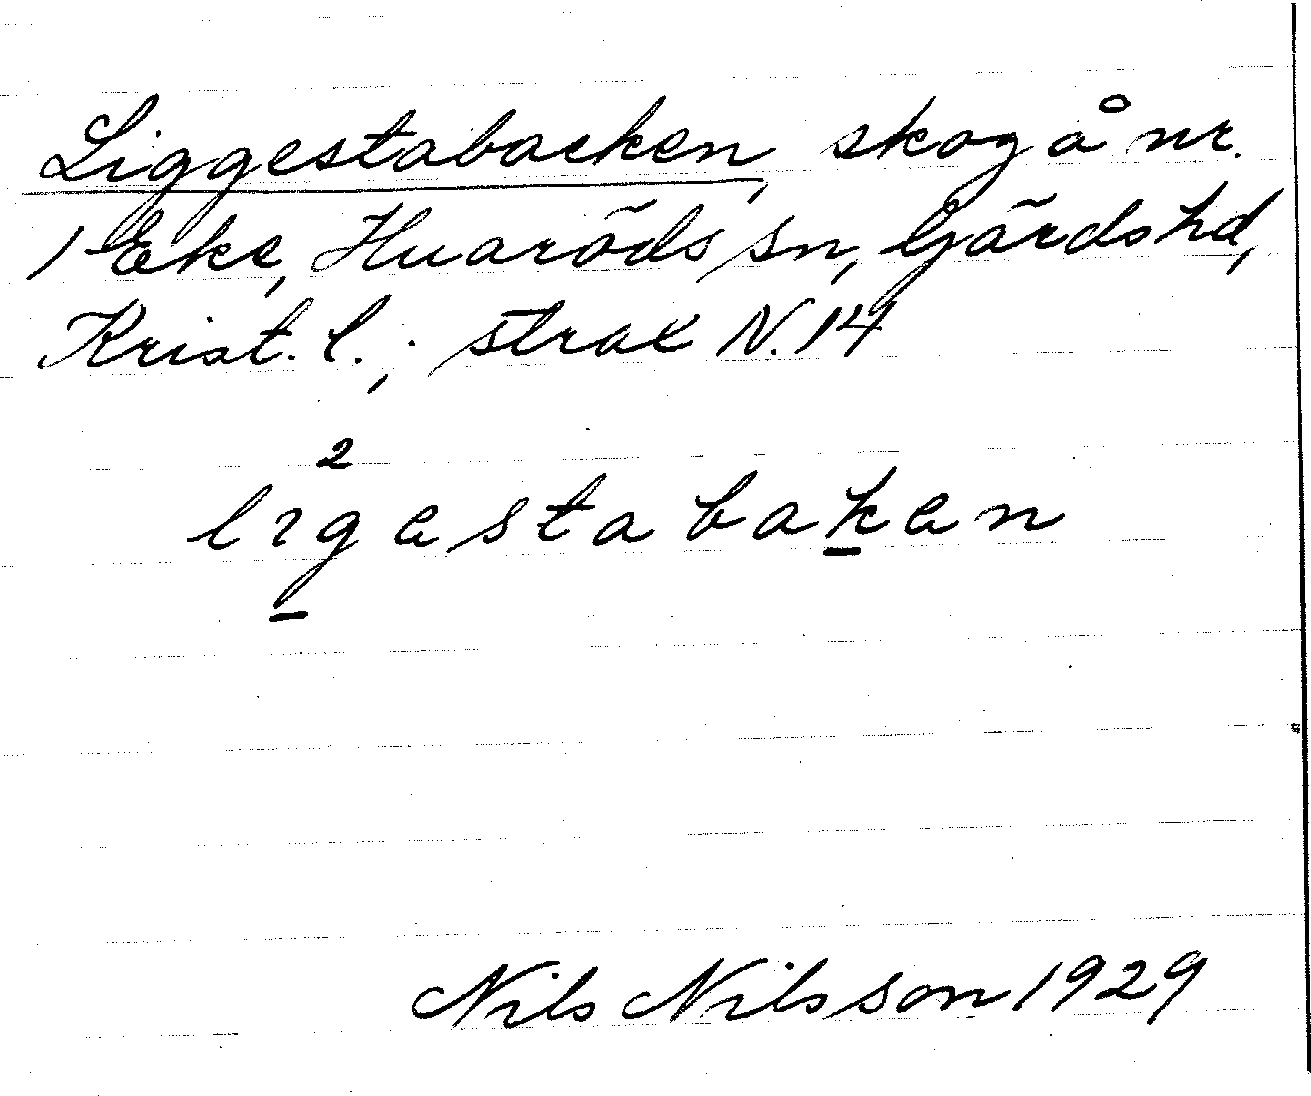 Liggestabacken, skog å nr.
1 Eke, Huaröds sn, Gärds hd,
Krist. l.; strax N. 14
2
ligestabaken
Nils Nilsson 1929